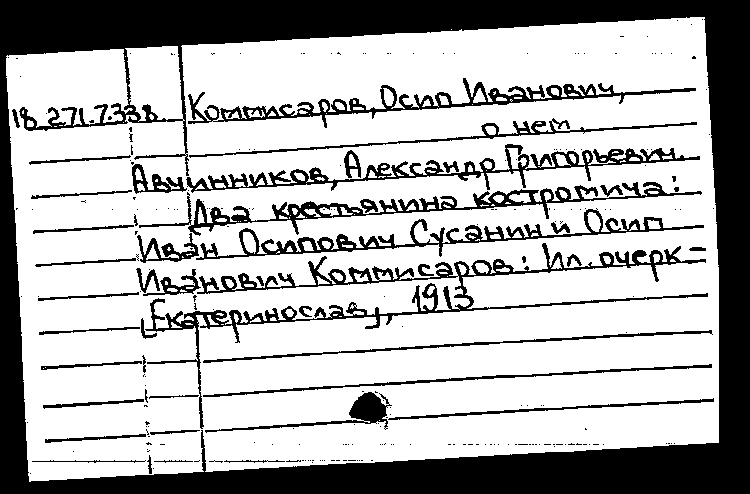 18.271.7.338 Коммисаров, Осип Иванович,
о нем.
Авчинников, Александр Григорьевич.
Два крестьянина костромича:
Иван Осипович Сусанин и Осип
Иванович Коммисаров: Ил. очерк =
[Екатеринослав], 1913